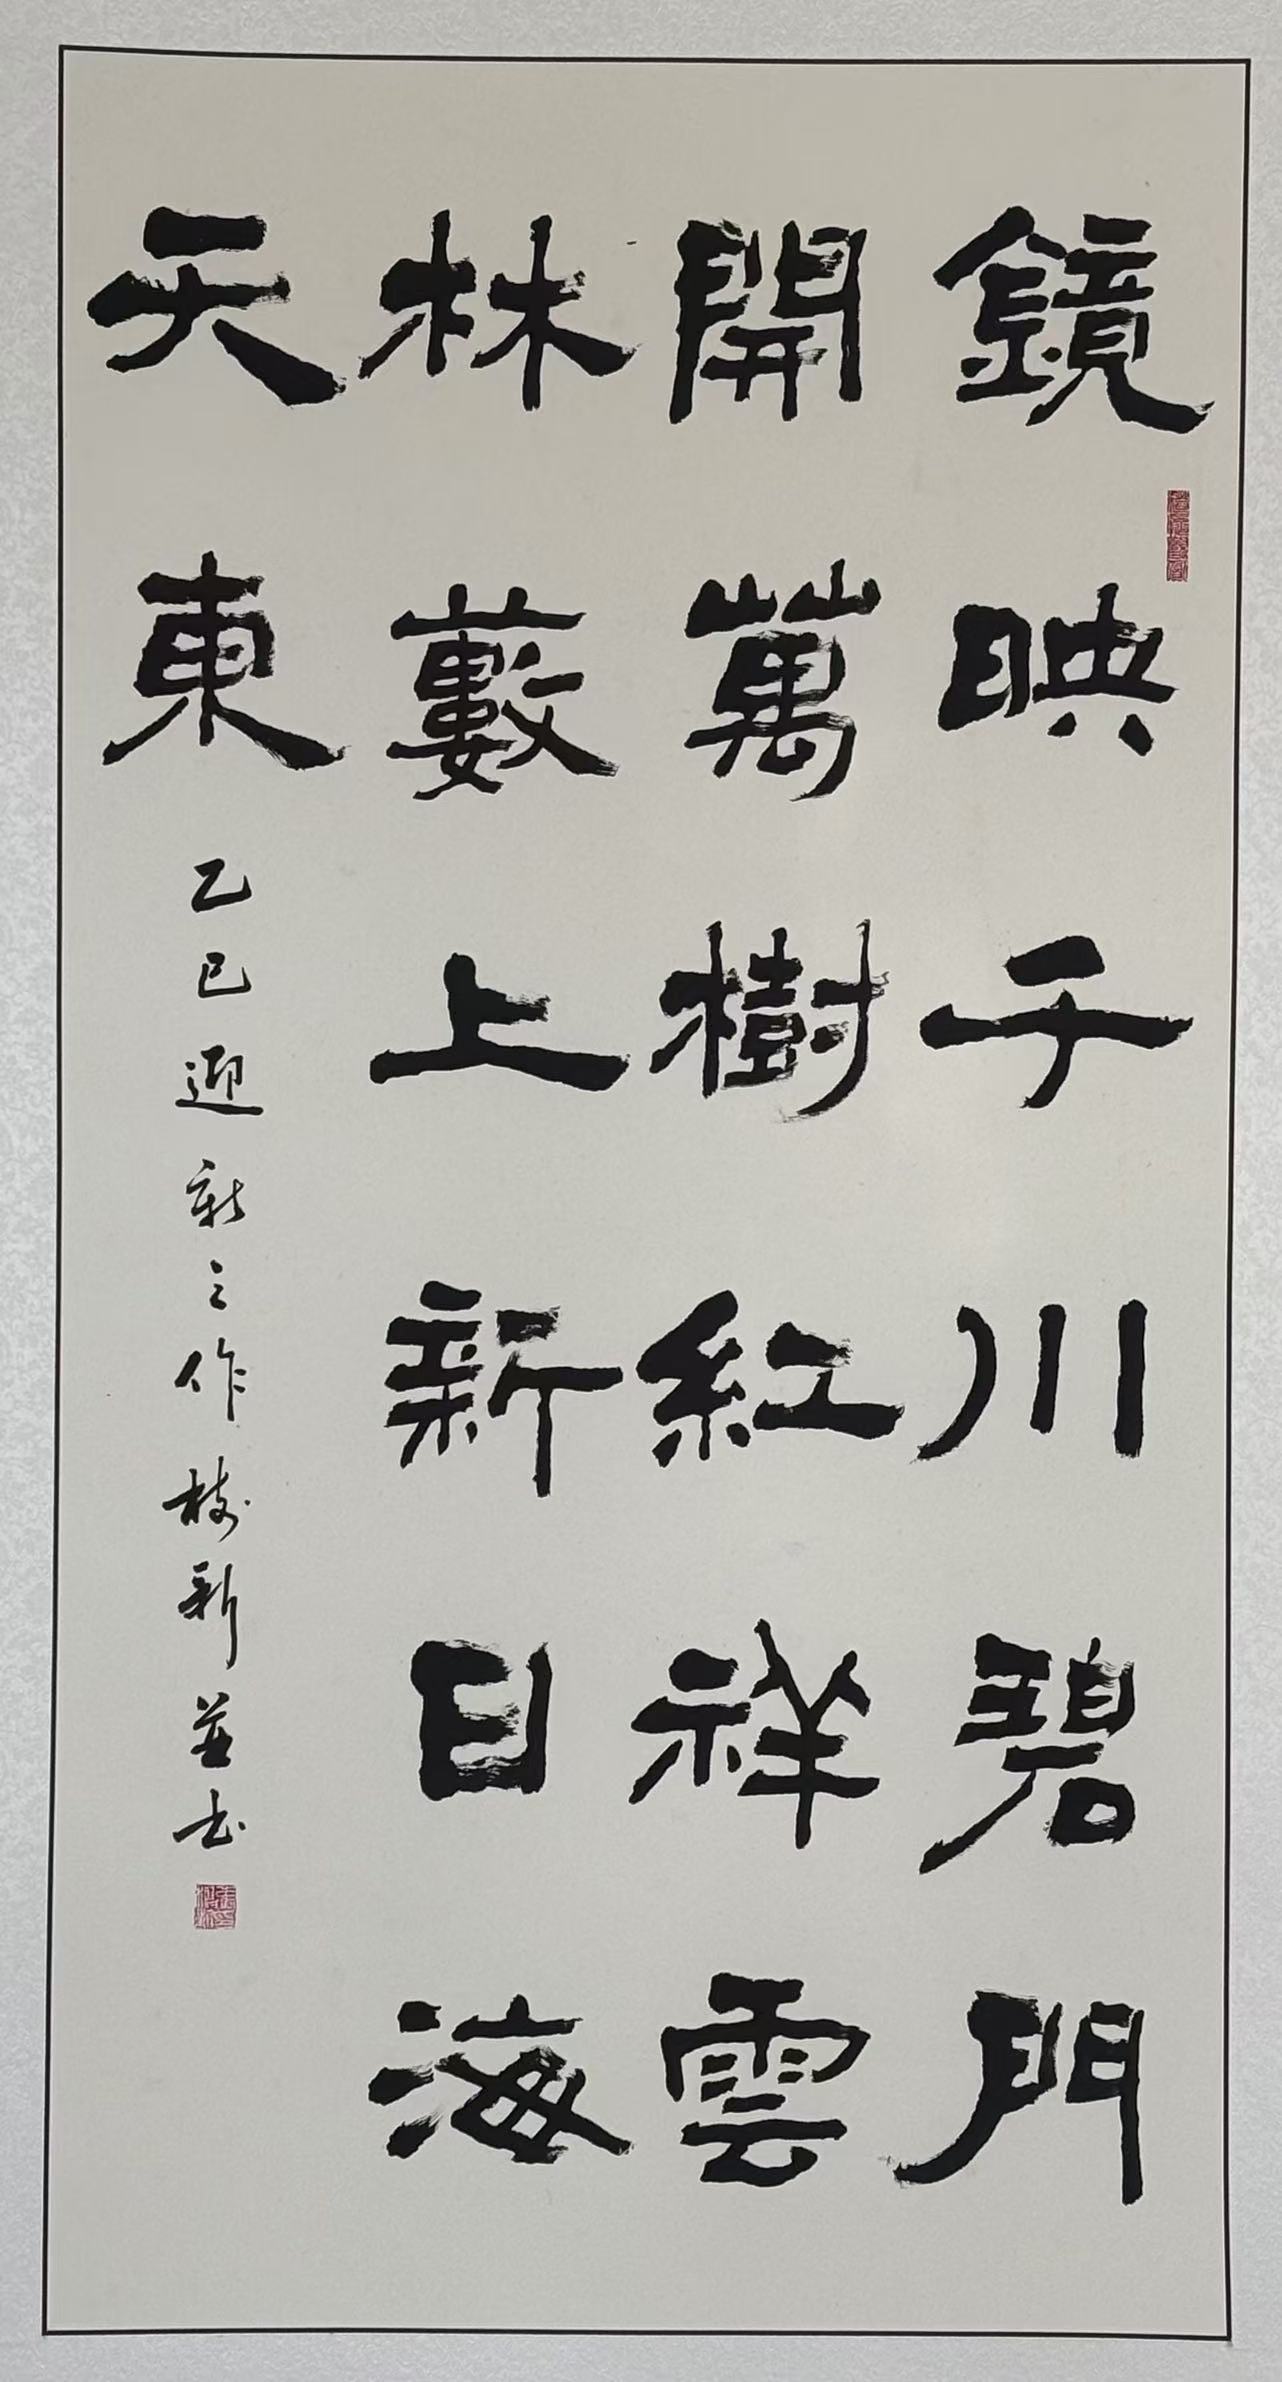 鏡映千川碧門
開萬樹紅祥雲
林藪上新日海
天東
乙巳迎新之作 新並书